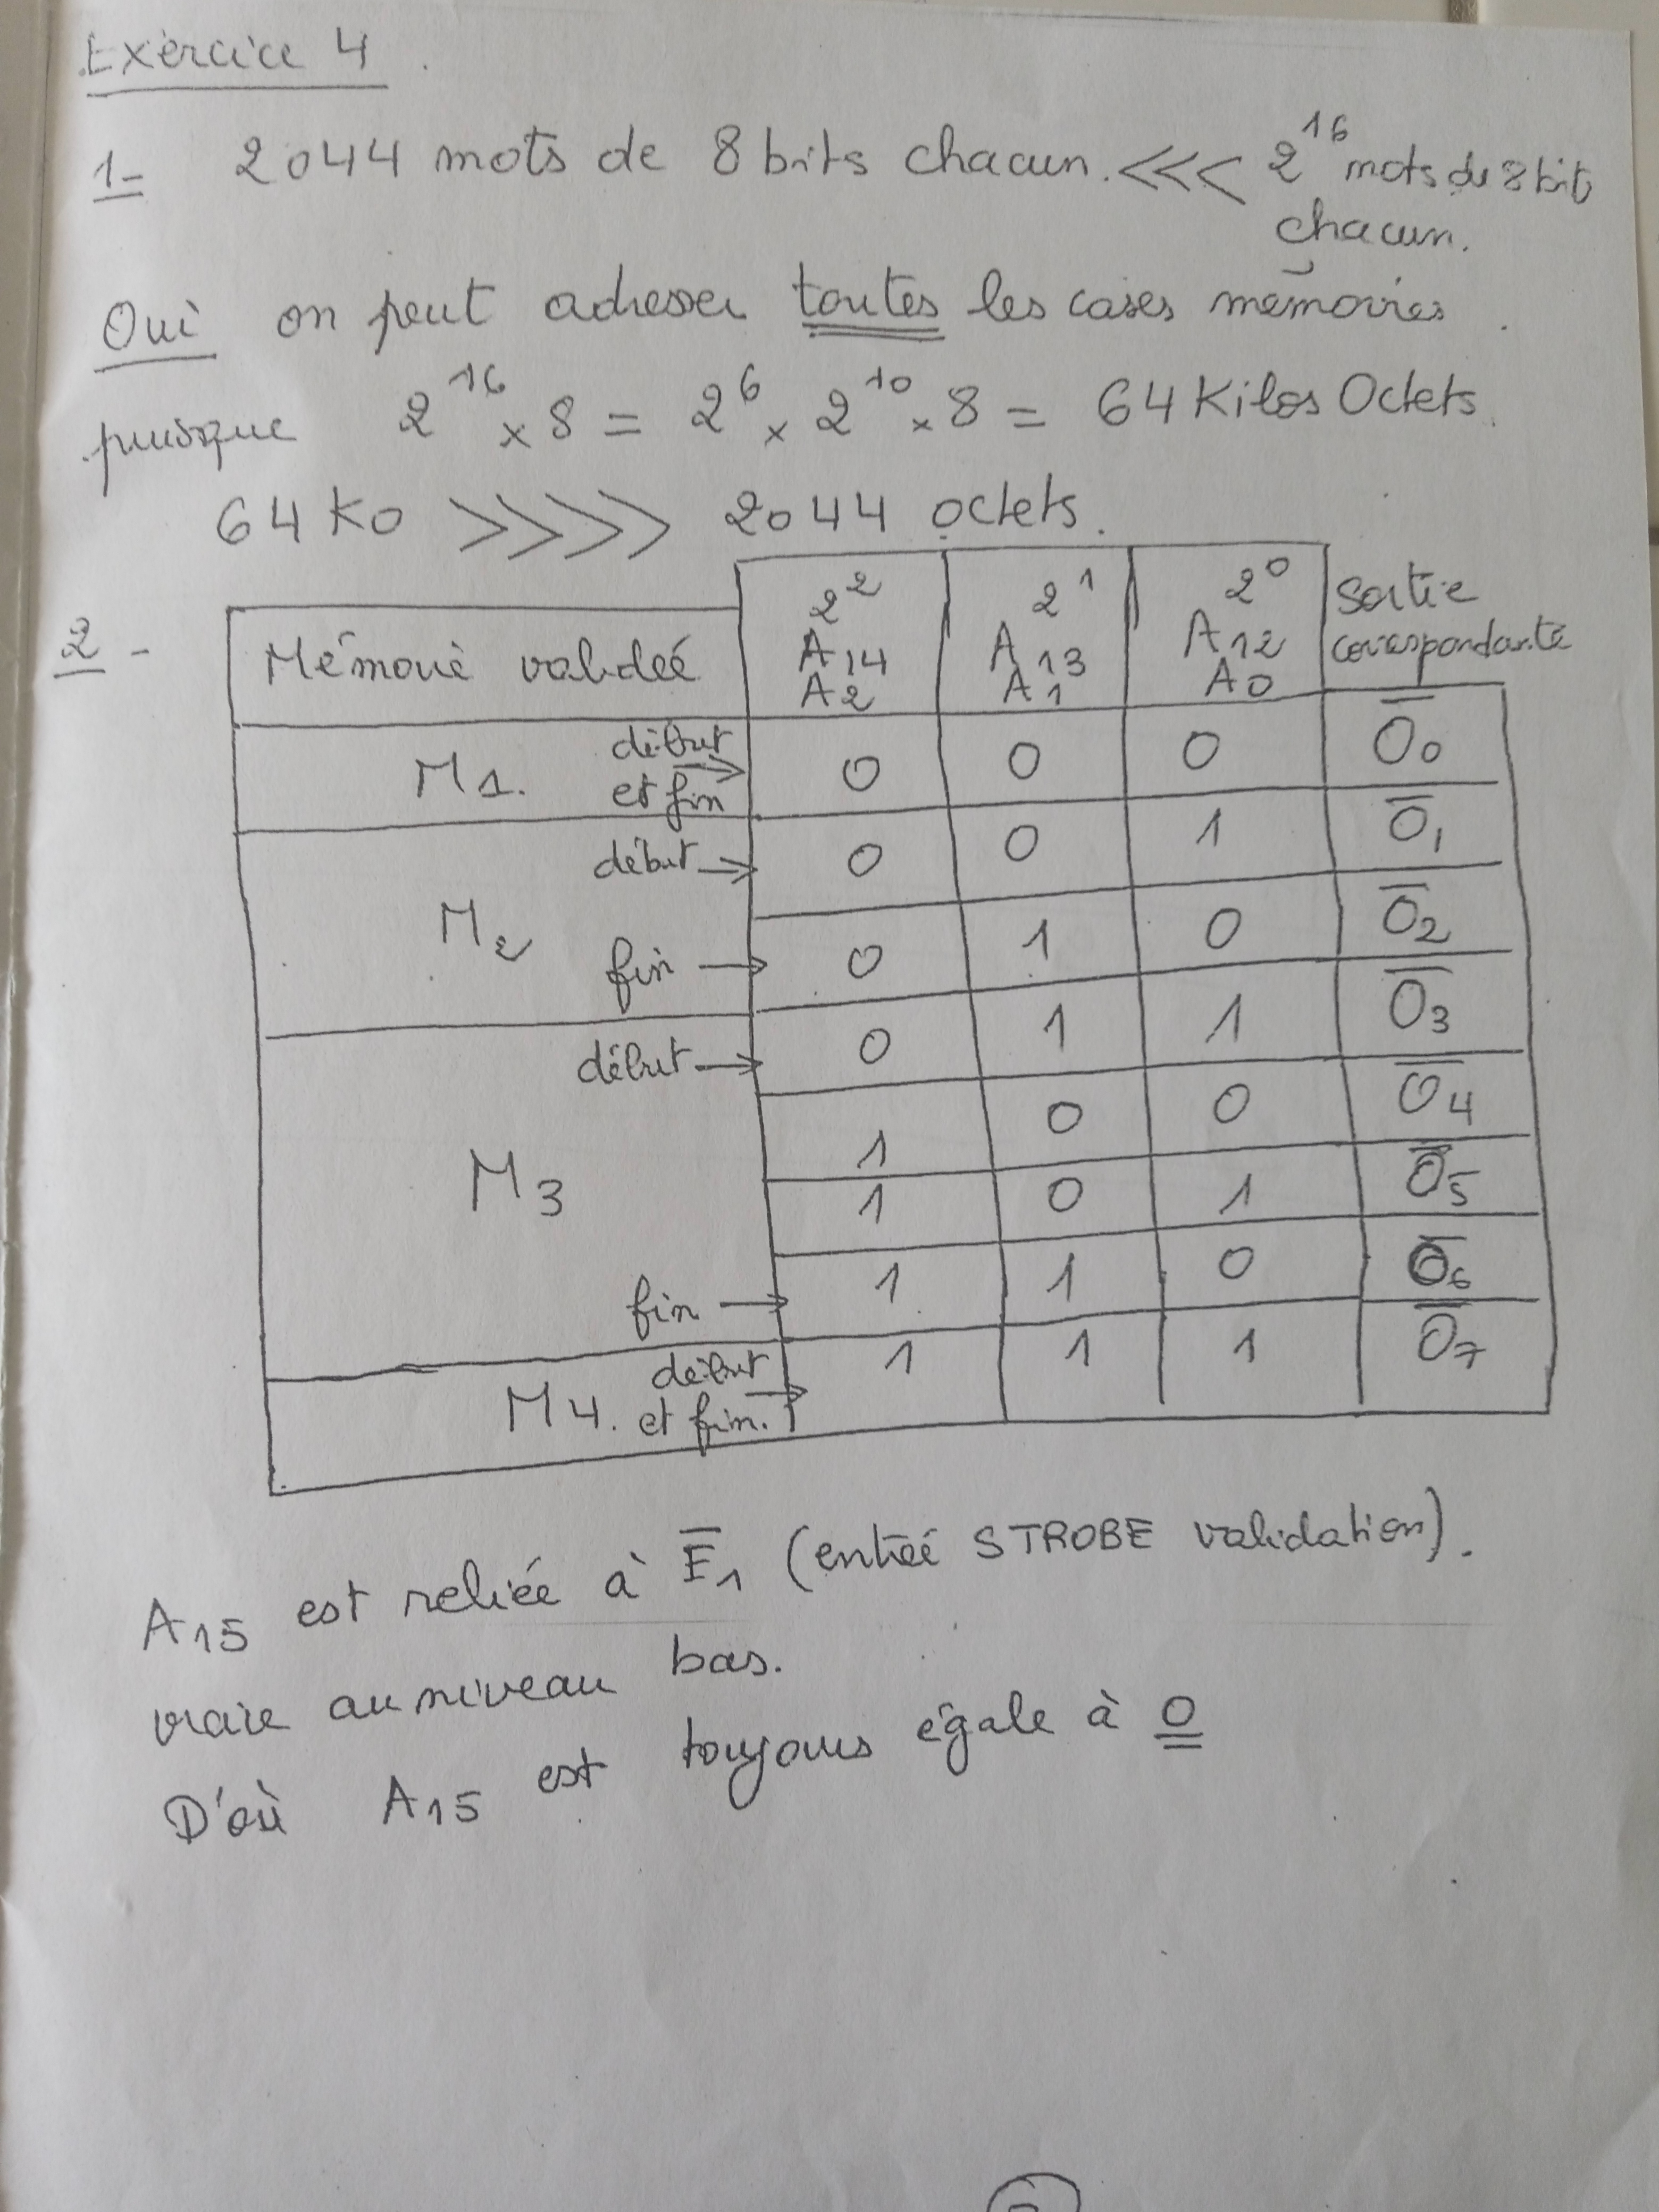 Exercice 4.
1- 2044 mots de 8 bits chacun. <<< 2^16 mots de 8 bit
chacun.
Oui on peut adresser toutes les cases mémoires.
puisque 2^16 x 8 = 2^6 x 2^10 x 8 = 64 Kilos Octets.
64 Ko >>>> 2044 octets.
2 - Mémoire validée 2^2 A14 A2 2^1 A13 A1 2^0 A12 A0 Sortie correspondante
M1. début et fin → 0 0 0 O̅0
M2 début → 0 0 1 O̅1
fin → 0 1 0 O̅2
M3 début → 0 1 1 O̅3
1 0 0 O̅4
1 0 1 O̅5
fin → 1 1 0 O̅6
M4. début et fin. → 1 1 1 O̅7
A15 est reliée à E̅1 (entrée STROBE validation).
vraie au niveau bas.
D'où A15 est toujours égale à 0